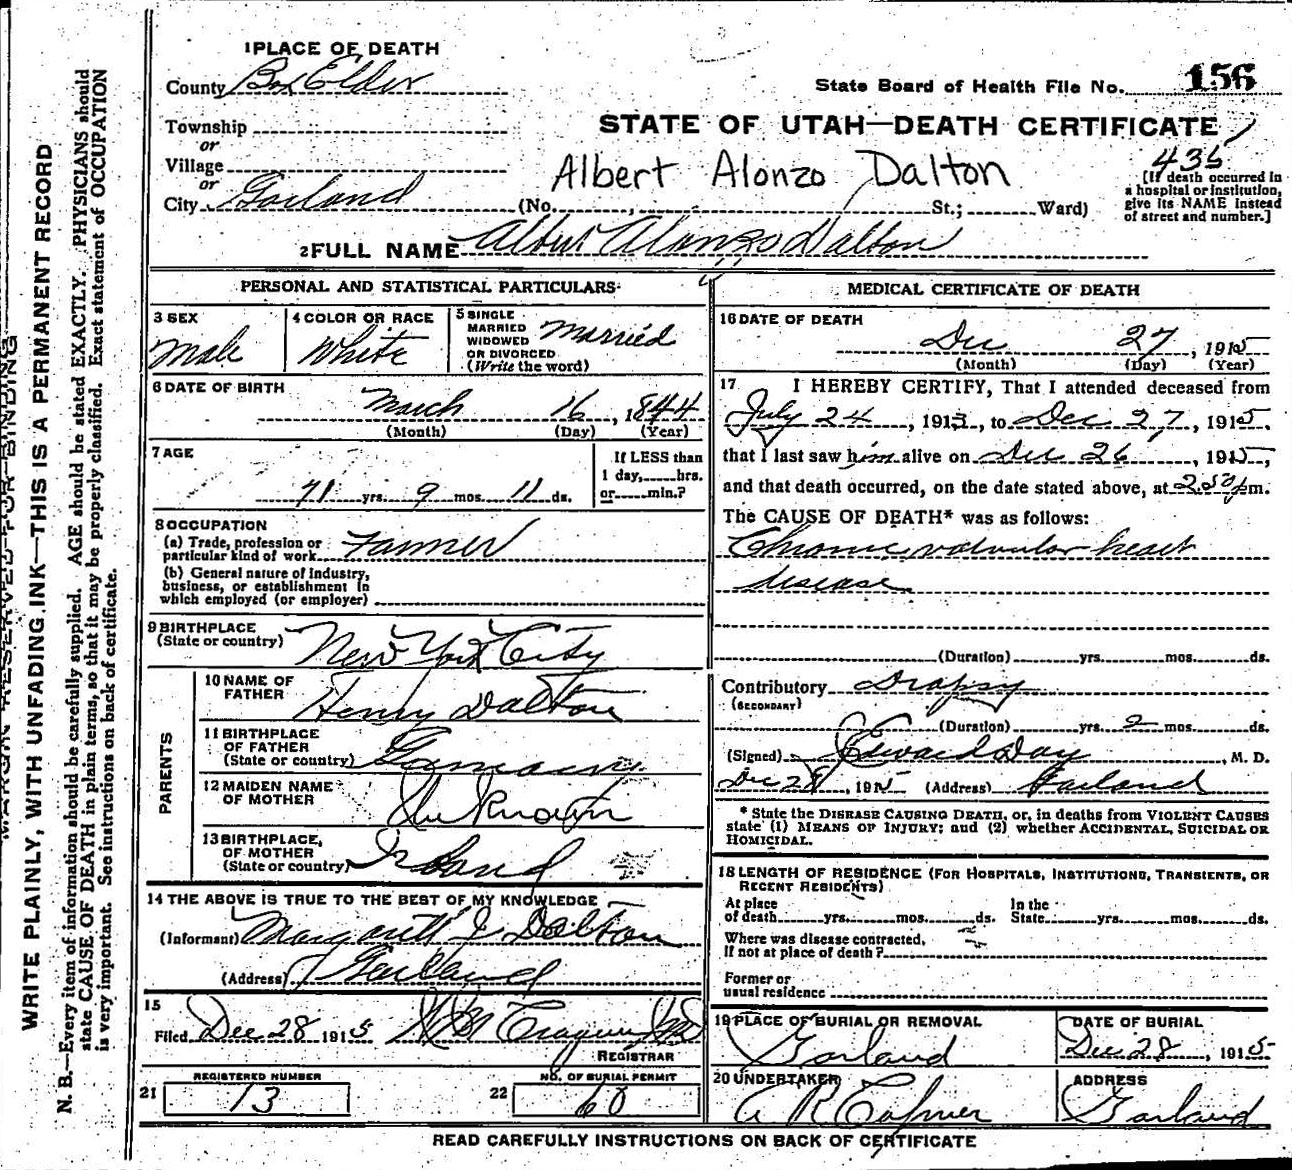 1 PLACE OF DEATH
County Box Elder
State Board of Health File No. 156
Township
or
Village
or
City Garland
STATE OF UTAH—DEATH CERTIFICATE
435
Albert Alonzo Dalton
(No. , St.; Ward)
[If death occurred in
a hospital or institution,
give its NAME instead
of street and number.]
2 FULL NAME Albert Alonzo Dalton
PERSONAL AND STATISTICAL PARTICULARS
3 SEX
Male
4 COLOR OR RACE
White
5 SINGLE
MARRIED
WIDOWED
OR DIVORCED
(Write the word)
Married
6 DATE OF BIRTH
March 16, 1844
(Month) (Day) (Year)
7 AGE
71 yrs. 9 mos. 11 ds.
If LESS than
1 day, hrs.
or min.?
8 OCCUPATION
(a) Trade, profession or
particular kind of work Farmer
(b) General nature of Industry,
business, or establishment in
which employed (or employer)
9 BIRTHPLACE
(State or country) New York City
PARENTS
10 NAME OF
FATHER Henry Dalton
11 BIRTHPLACE
OF FATHER
(State or country)
12 MAIDEN NAME
OF MOTHER
13 BIRTHPLACE,
OF MOTHER
(State or country) Ireland
14 THE ABOVE IS TRUE TO THE BEST OF MY KNOWLEDGE
(Informant) Margarett J Dalton
(Address) Garland
15
Filed Dec 28 1915
REGISTRAR
REGISTERED NUMBER
21 13
NO. OF BURIAL PERMIT
22 60
MEDICAL CERTIFICATE OF DEATH
16 DATE OF DEATH
Dec 27, 1915
(Month) (Day) (Year)
17 I HEREBY CERTIFY, That I attended deceased from
July 24, 1913, to Dec 27, 1915,
that I last saw him alive on Dec 26, 1915,
and that death occurred, on the date stated above, at 2:30 p m.
The CAUSE OF DEATH* was as follows:
Chronic valvular heart
disease
(Duration) yrs. mos. ds.
Contributory Dropsy
(SECONDARY)
(Duration) yrs. 2 mos. ds.
(Signed) Edward Day, M. D.
Dec 28, 1915 (Address) Garland
* State the DISEASE CAUSING DEATH, or, in deaths from VIOLENT CAUSES
state (1) MEANS OF INJURY; and (2) whether ACCIDENTAL, SUICIDAL OR
HOMICIDAL.
18 LENGTH OF RESIDENCE (FOR HOSPITALS, INSTITUTIONS, TRANSIENTS, OR
RECENT RESIDENTS)
At place
of death yrs. mos. ds.
In the
State yrs. mos. ds.
Where was disease contracted,
If not at place of death?
Former or
usual residence
19 PLACE OF BURIAL OR REMOVAL
Garland
DATE OF BURIAL
Dec 28, 1915
20 UNDERTAKER
A R
ADDRESS
Garland
READ CAREFULLY INSTRUCTIONS ON BACK OF CERTIFICATE
MARGIN RESERVED FOR BINDING
WRITE PLAINLY, WITH UNFADING INK—THIS IS A PERMANENT RECORD
N. B.—Every item of information should be carefully supplied. AGE should be stated EXACTLY. PHYSICIANS should
state CAUSE OF DEATH in plain terms, so that it may be properly classified. Exact statement of OCCUPATION
is very important. See instructions on back of certificate.